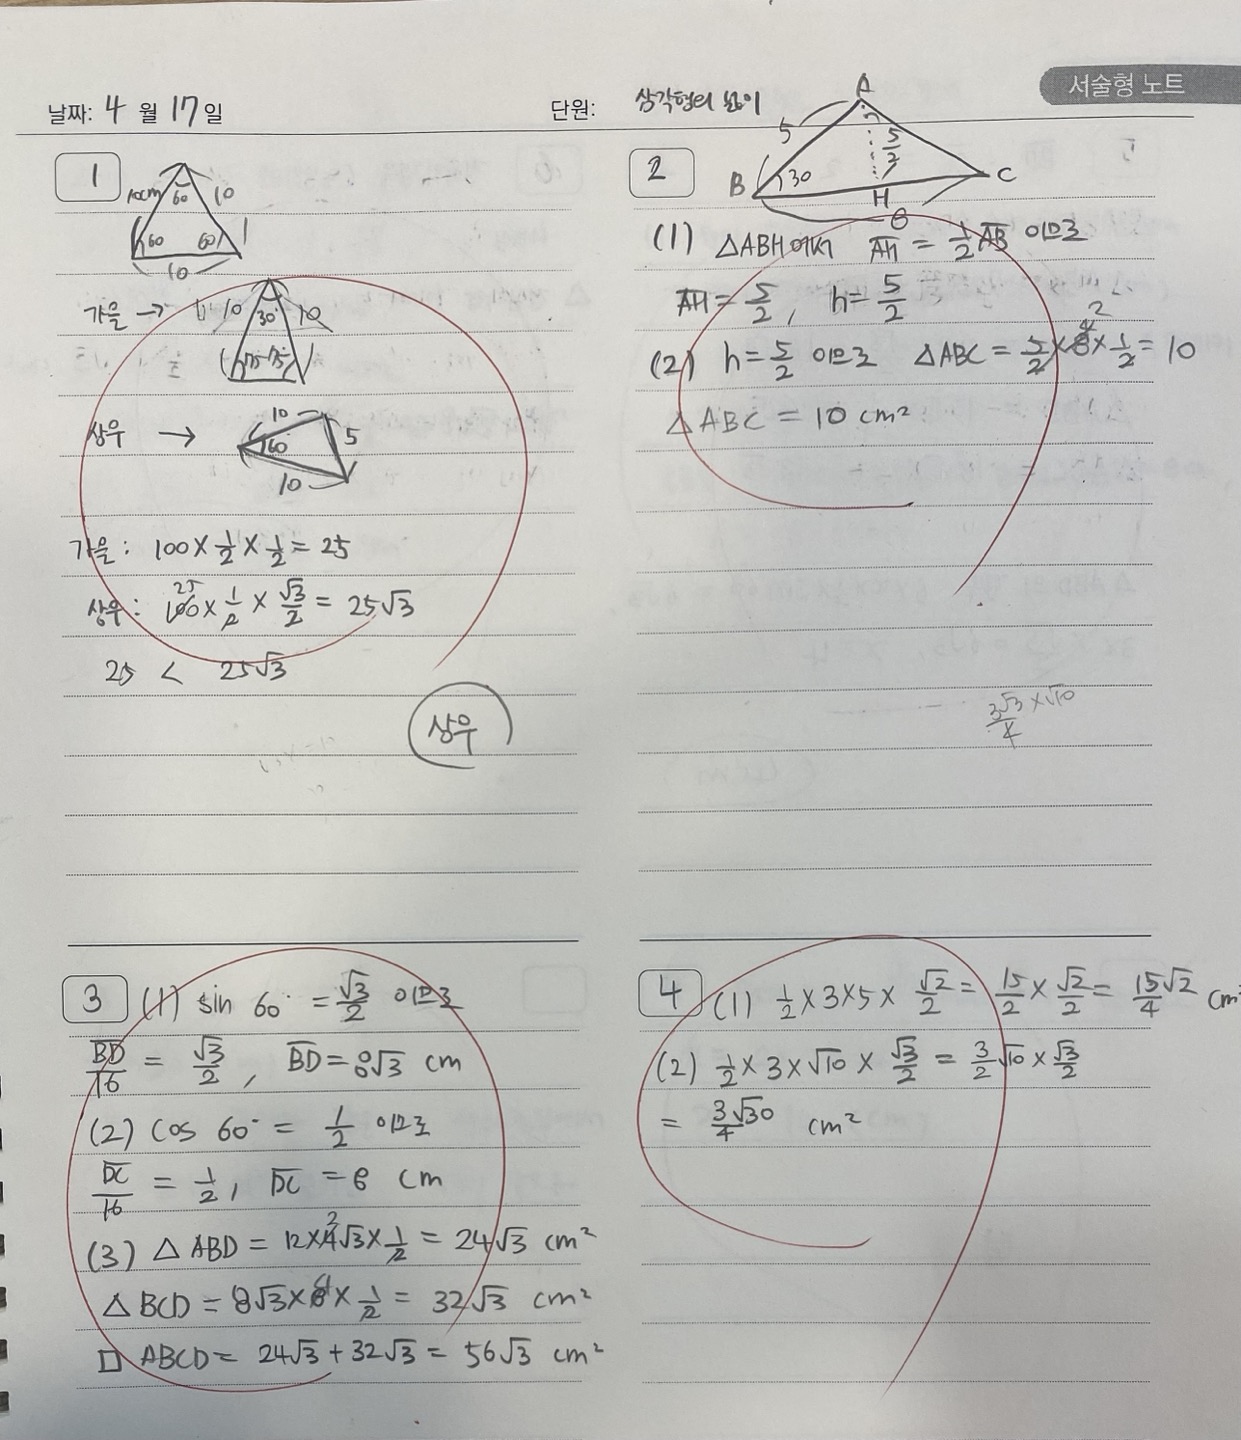 서술형 노트
날짜: 4 월 17일
단원: 삼각형의 넓이
1
10cm 60 10
60 60
10
가을 → 10 30 10
75 75
상우 → 10
60 5
10
가을: 100 × 1/2 × 1/2 = 25
상우: 100 × 1/2 × √3/2 = 25√3
25
25 < 25√3
상우
2
A
5 5/2
B 30 H C
8
(1) △ABH에서 AH = 1/2 AB 이므로
AH = 5/2, h = 5/2
(2) h = 5/2 이므로 △ABC = 5/2 × 8 × 1/2 = 10
△ABC = 10 cm²
3√3/4 × √10
3
(1) sin 60° = √3/2 이므로
BD/16 = √3/2, BD = 8√3 cm
(2) cos 60° = 1/2 이므로
DC/16 = 1/2, DC = 8 cm
(3) △ABD = 12 × 4√3 × 1/2 = 24√3 cm²
△BCD = 8√3 × 8 × 1/2 = 32√3 cm²
□ABCD = 24√3 + 32√3 = 56√3 cm²
4
(1) 1/2 × 3 × 5 × √2/2 = 15/2 × √2/2 = 15√2/4 cm²
(2) 1/2 × 3 × √10 × √3/2 = 3/2 √10 × √3/2
= 3√30/4 cm²